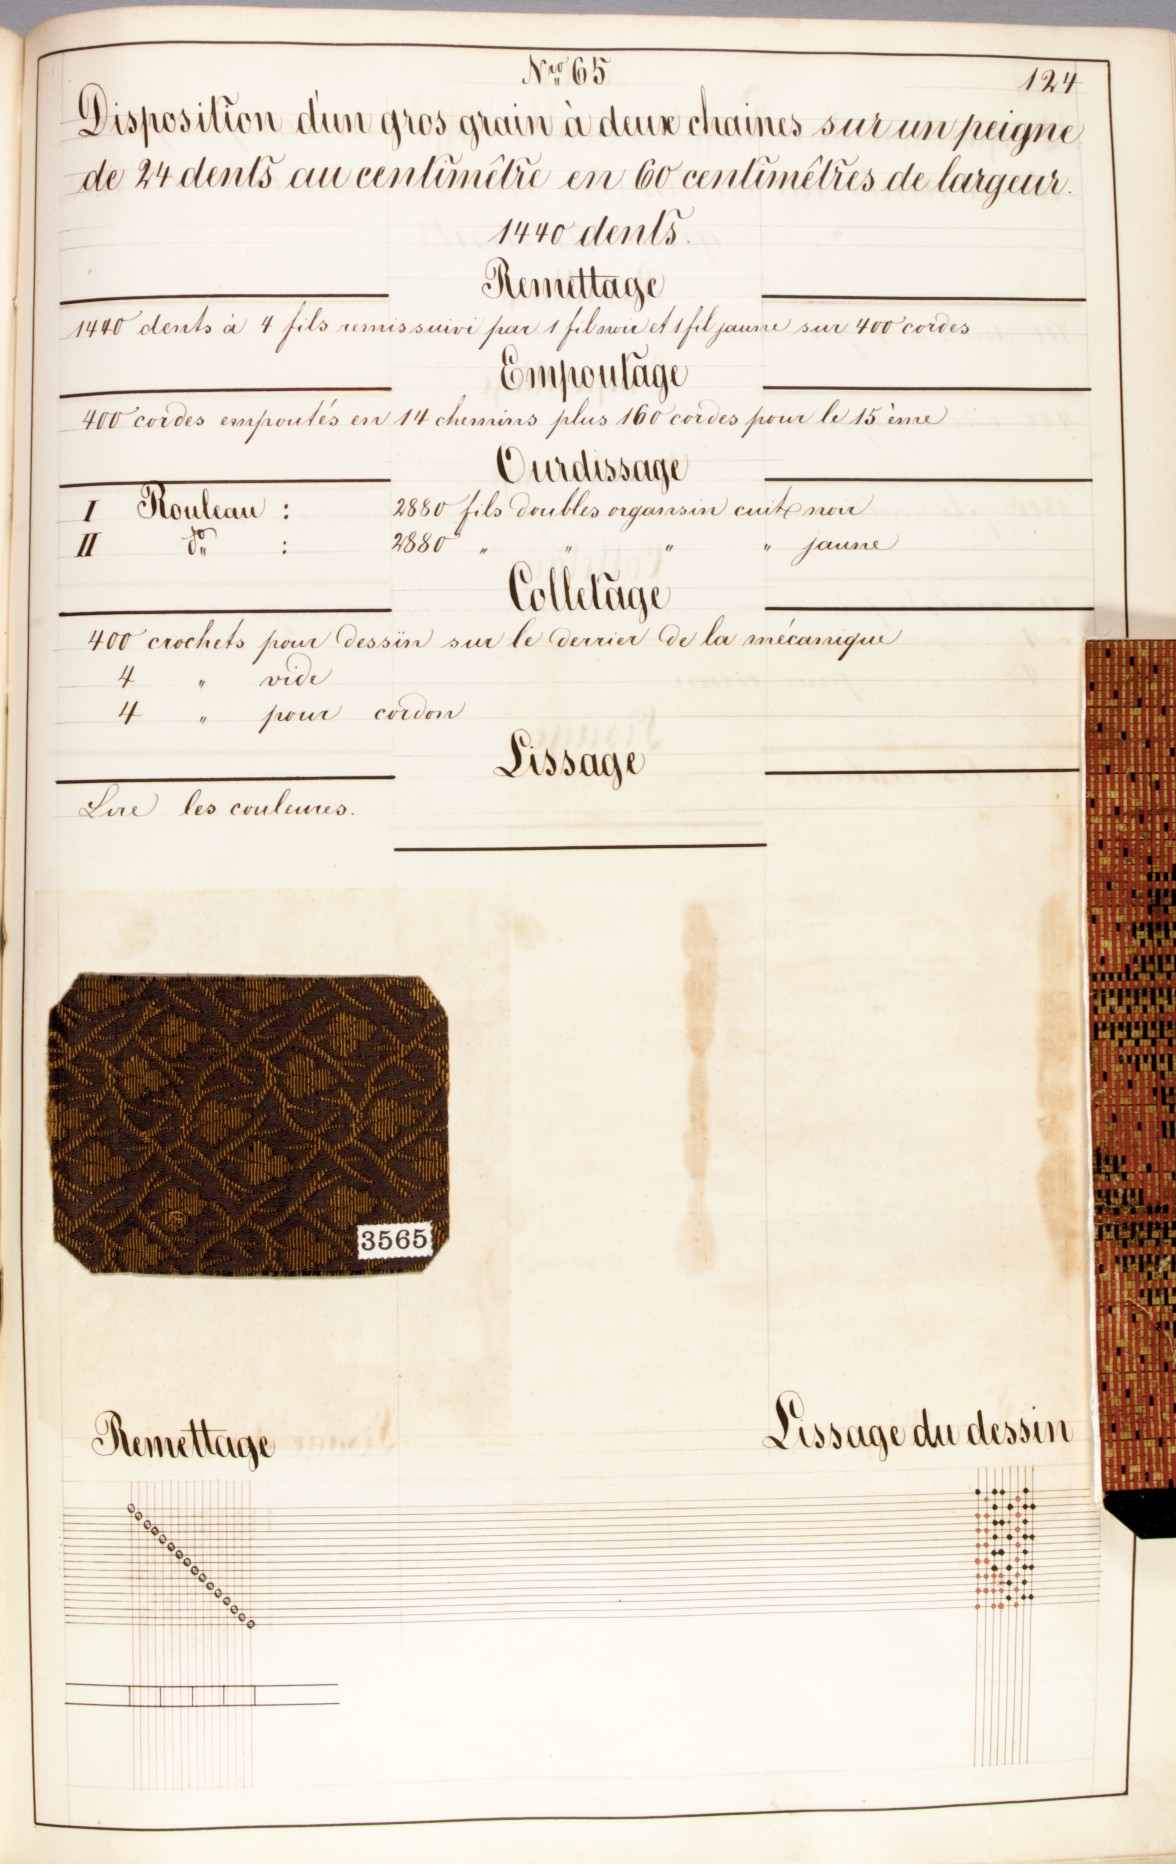 Nro 65
124
Disposition d'un gros grain à deux chaines sur un peigne
de 24 dents au centimêtre en 60 centimêtres de largeur.
1440 dents.
Remettage
1440 dents à 4 fils remis suivi par 1 fil noir et 1 fil jaune sur 400 cordes
Empoutage
400 cordes empoutés en 14 chemins plus 160 cordes pour le 15ème
Ourdissage
I Rouleau : 2880 fils doubles organsin cuit noir
II do : 2880 " " " " jaune
Colletage
400 crochets pour dessin sur le derrier de la mécanique
4 " vide
4 " pour cordon
Lissage
Lire les couleures.
3565
Remettage
Lissage du dessin